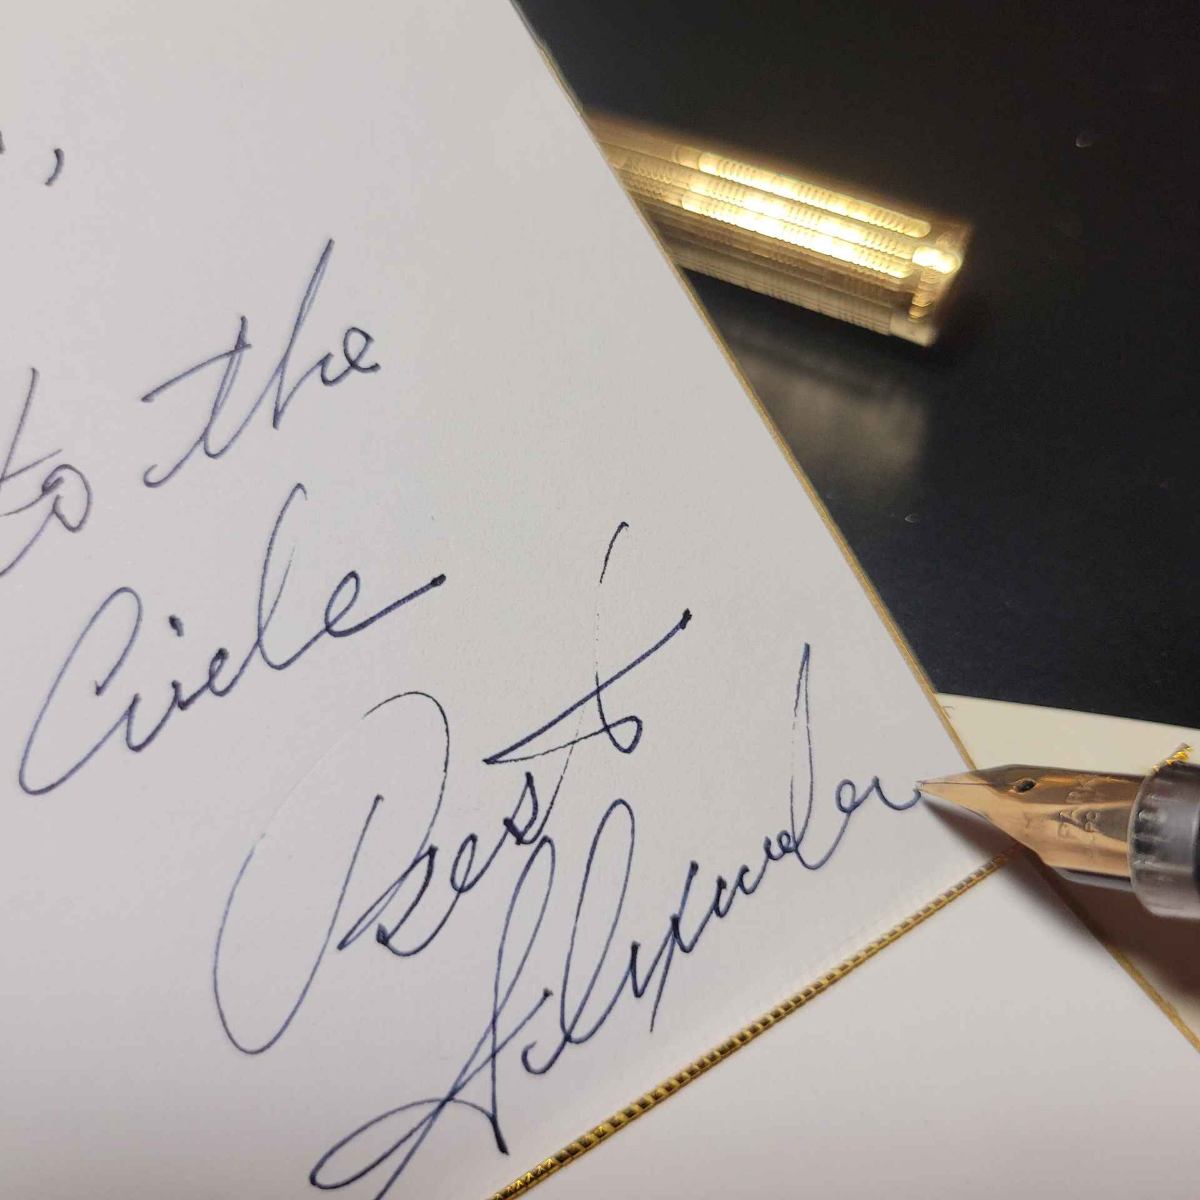 ,
to the
Circle
Best
Alexander